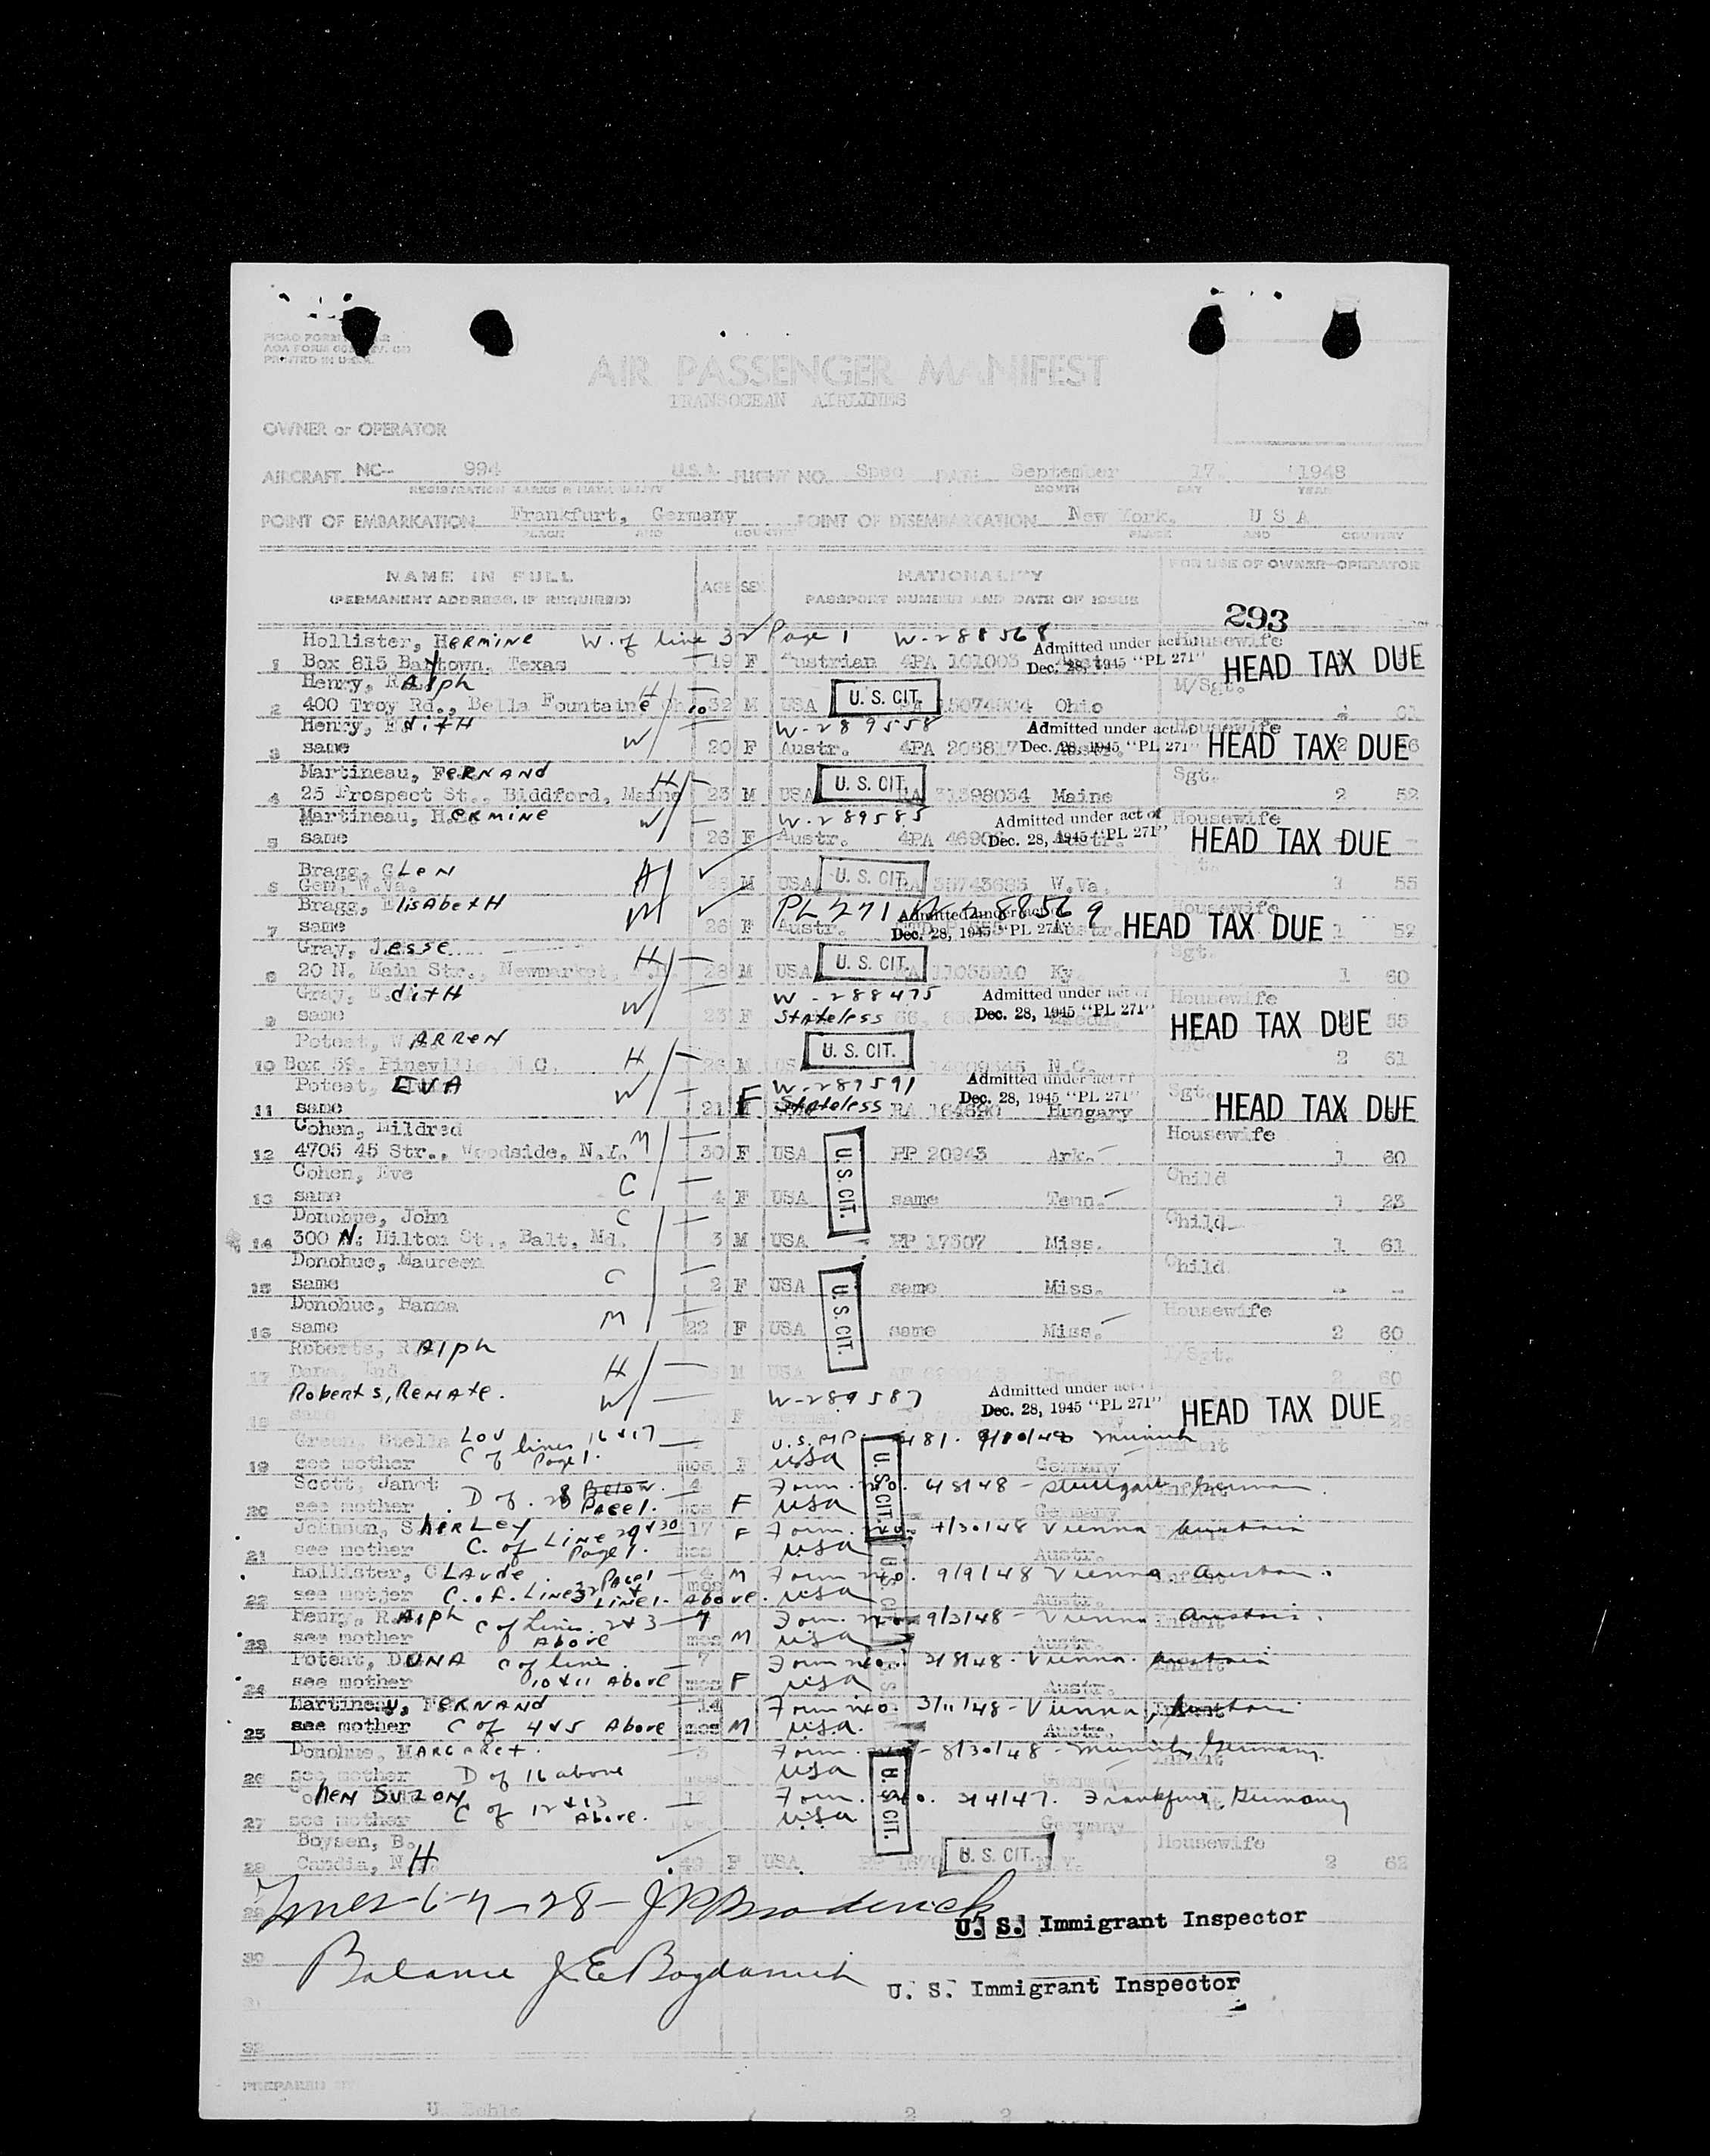 PRINTED IN U.S.A.
AIR PASSENGER MANIFEST
TRANSOCEAN AIRLINES
OWNER or OPERATOR
AIRCRAFT NC-- 994 U.S.A. FLIGHT NO. Spec DATE September 17 1948
REGISTRATION MARKS & NATIONALITY MONTH DAY YEAR
POINT OF EMBARKATION Frankfurt, Germany POINT OF DISEMBARKATION New York, U S A
PLACE AND COUNTRY PLACE AND COUNTRY
NAME IN FULL AGE SEX NATIONALITY FOR USE OF OWNER-OPERATOR
(PERMANENT ADDRESS, IF REQUIRED) PASSPORT NUMBER AND DATE OF ISSUE
293
Hollister, HERMINE W. of line 32 Page 1 W-288568 Admitted under act Housewife
1 Box 815 Baytown, Texas 19 F Austrian 4PA 101003 Dec. 28, 1945 "PL 271" HEAD TAX DUE
Henry, RAlph H U. S. CIT. M/Sgt.
2 400 Troy Rd., Bella Fountaine Ohio 32 M USA Ohio 61
Henry, EditH W W-289558 Admitted under act Housewife
3 same 20 F Austr. 4PA 206817 Dec. 28, 1945 "PL 271" HEAD TAX DUE
Martineau, FERNANd H U. S. CIT. Sgt.
4 25 Prospect St., Biddford, Maine 23 M USA RA 31398034 Maine 2 52
Martineau, HERMINE W W-289585 Admitted under act of Housewife
5 same 26 F Austr. 4PA Dec. 28, 1945 "PL 271" HEAD TAX DUE
Bragg, GLEN H U. S. CIT.
6 Gen, W.Va. M USA 35743683 W.Va. 1 55
Bragg, ElisAbetH W PL 271 W-288569 Admitted under act of Housewife
7 same 26 F Austr. Dec. 28, 1945 "PL 271" HEAD TAX DUE 1 52
Gray, Jesse H U. S. CIT. Sgt.
8 20 N. Main Str., Newmarket, 28 M USA Ky. 1 60
Gray, EditH W W-288475 Admitted under act of Housewife
9 same 23 F Stateless Dec. 28, 1945 "PL 271" HEAD TAX DUE 55
Poteat, WARREN H U. S. CIT.
10 Box 59, Pineville, N.C. 26 M US N.C. 2 61
Poteat, EVA W W-289591 Admitted under act of Sgt.
11 same 21 F Stateless Hungary Dec. 28, 1945 "PL 271" HEAD TAX DUE
Cohen, Mildred M Housewife
12 4705 45 Str., Woodside, N.Y. 30 F USA U.S. CIT. PP 20943 Ark. 1 60
Cohen, Eve C Child
13 same 4 F USA same Tenn. 1 23
Donohue, John C Child
14 300 N. Hilton St., Balt, Md. 3 M USA PP 17507 Miss. 1 61
Donohue, Maureen C Child
15 same 2 F USA U.S. CIT. same Miss.
Donohue, Hanna M Housewife
16 same 22 F USA same Miss. 2 60
Roberts, RAlph H M/Sgt.
17 Ind. M USA 2 60
Roberts, RENAte. W W-289587 Admitted under act
18 same F Dec. 28, 1945 "PL 271" HEAD TAX DUE
Green, Stella LOU C of lines 16 & 17 Munich Infant
19 see mother Page 1. mos F USA U.S. CIT. Germany
Scott, Janet D of Below 4 Form no. 4/8/48 - Stuttgart German. Infant
20 see mother Page 1. mos F USA Germany
Johnson, SHERLEY C. of LINE 29 & 30 17 F Form no. 4/30/48 Vienna Austria Infant
21 see mother Page 1. mos USA Austr.
Hollister, CLAUDE. Page 1 4 M Form no. 9/9/48 Vienna Austria. Infant
22 see mother C. of. LINE 32 & LINE 1. Above. mos USA Austr.
Henry, RAlph C of Lines 2 & 3 Form no. 9/3/48 - Vienna Austria. Infant
23 see mother Above mos M USA Austr.
Poteat, DONNA C of line 7 Form no. 2/8/48. Vienna. Austria Infant
24 see mother 10 & 11 Above mos F USA Austr.
Martineau, FERNAND 14 Form no. 3/11/48 - Vienna, Austria
25 see mother C of 4 & 5 Above mos M USA. Austr.
Donohue, MARGARET. Form no. - 8/30/48 - Munich, Germany. Infant
26 see mother D of 16 above USA
CohEN SUZON 12 Form no. 3/4/47. Frankfurt, Germany
27 see mother C of 12 & 13 Above. USA U.S. CIT. Germany
Boysen, B. Housewife
28 Candia, N.H F USA U. S. CIT. 2 62
29 Lines 6-7-28- J P Broderick U. S. Immigrant Inspector
30 Balance J.E Bogdanich U. S. Immigrant Inspector
31
32
PREPARED BY